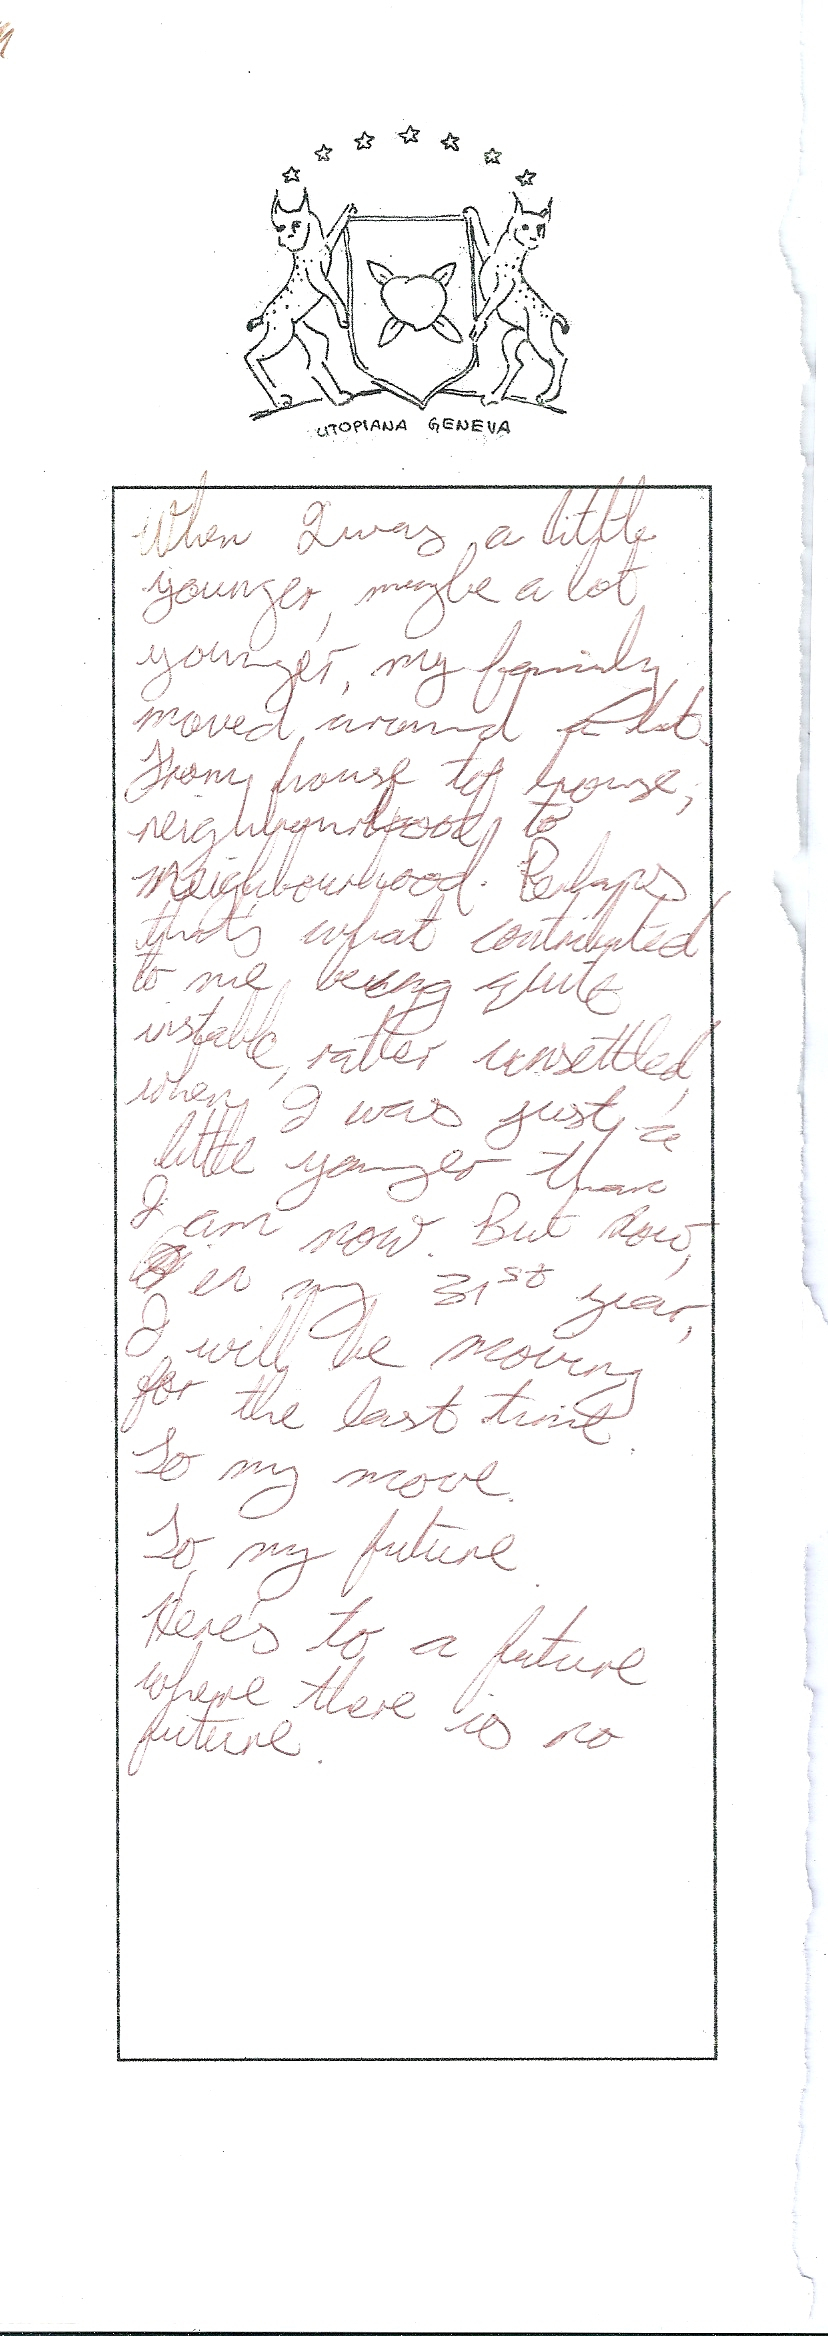 UTOPIANA GENEVA
When I was a little
younger, maybe a lot
younger, my family
moved around a lot.
From house to house,
neighbourhood to
neighbourhood. Perhaps
that's what contributed
to me being quite
instable, rather unsettled,
when I was just a
little younger than
I am now. But now,
in my 31st year,
I will be moving
for the last time.
To my move.
To my future.
Here's to a future
where there is no
future.